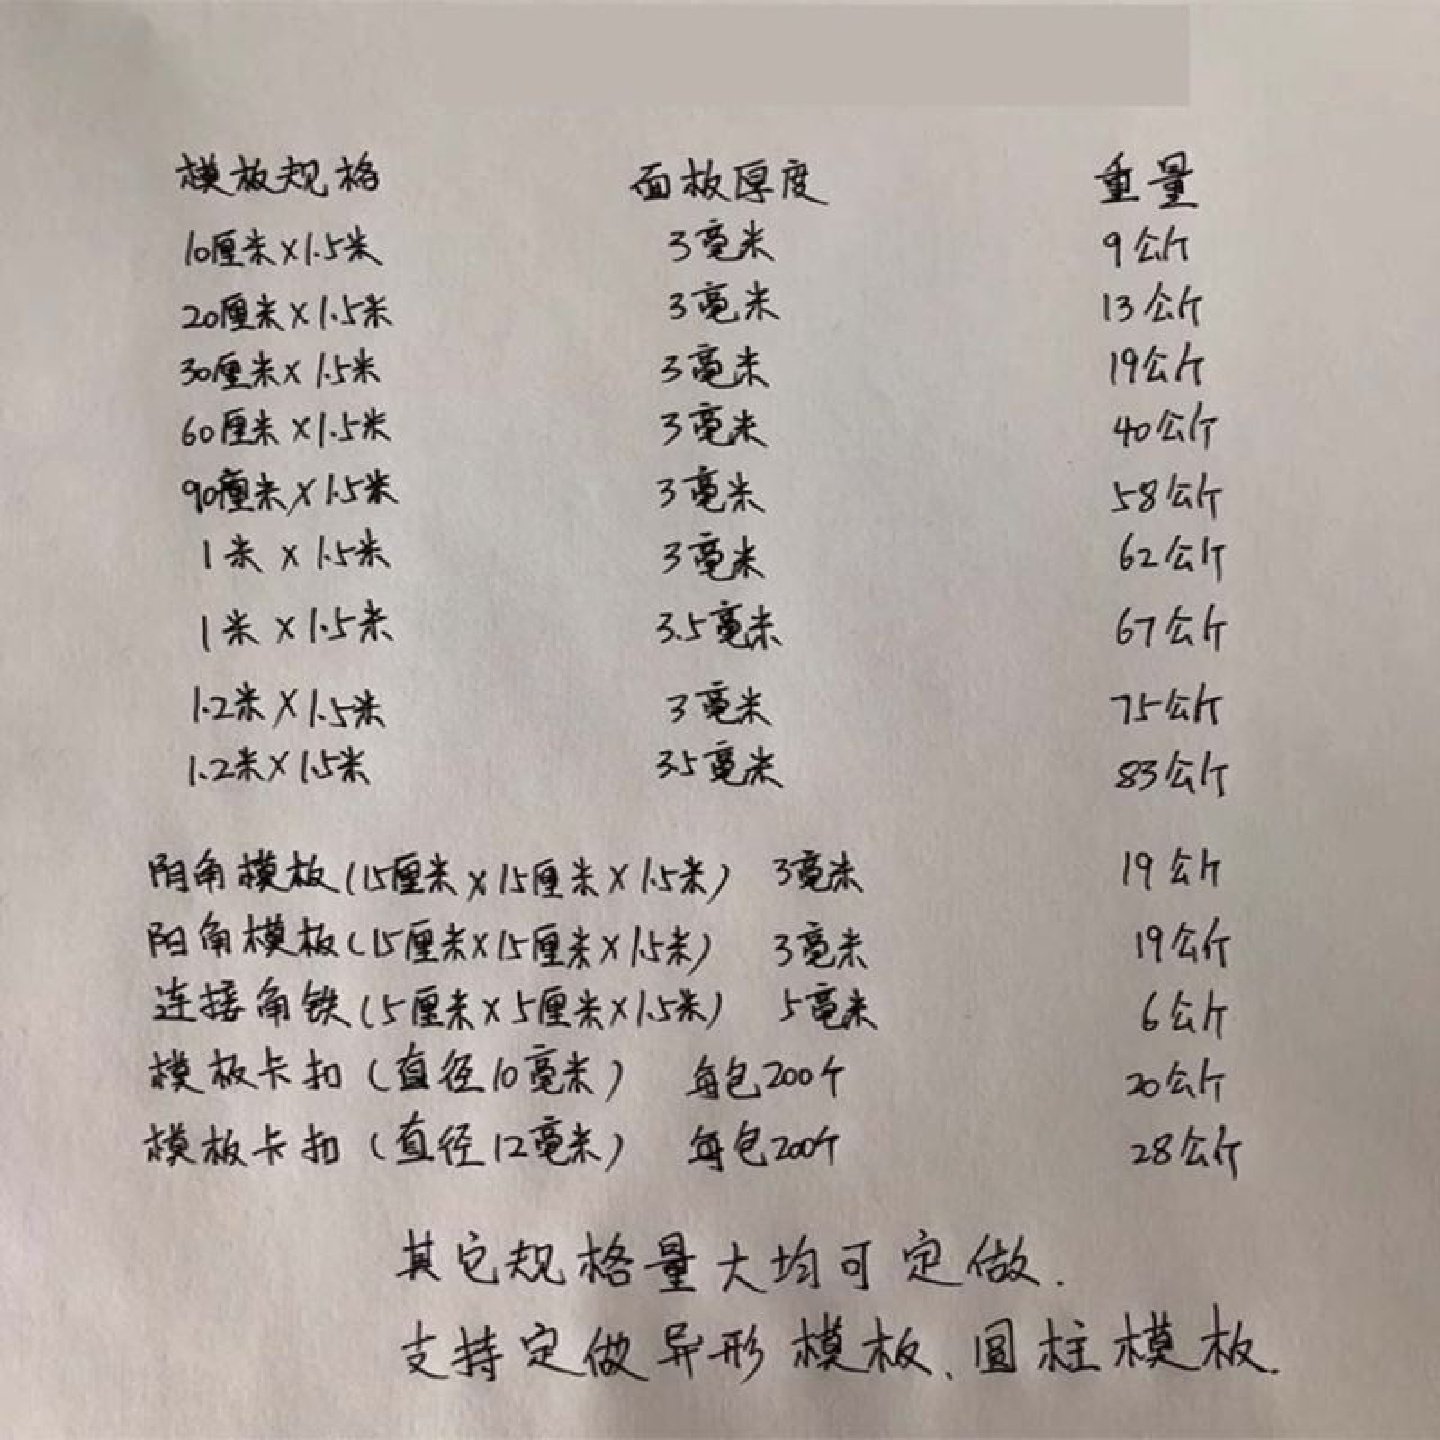 模板规格 面板厚度 重量
10厘米×1.5米 3毫米 9公斤
20厘米×1.5米 3毫米 13公斤
30厘米×1.5米 3毫米 19公斤
60厘米×1.5米 3毫米 40公斤
90厘米×1.5米 3毫米 58公斤
1米×1.5米 3毫米 62公斤
1米×1.5米 3.5毫米 67公斤
1.2米×1.5米 3毫米 75公斤
1.2米×1.5米 3.5毫米 83公斤
阳角模板(15厘米×15厘米×1.5米) 3毫米 19公斤
阳角模板(15厘米×15厘米×1.5米) 3毫米 19公斤
连接角铁(5厘米×5厘米×1.5米) 5毫米 6公斤
模板卡扣(直径10毫米) 每包200个 20公斤
模板卡扣(直径12毫米) 每包200个 28公斤
其它规格量大均可定做.
支持定做异形模板、圆柱模板.